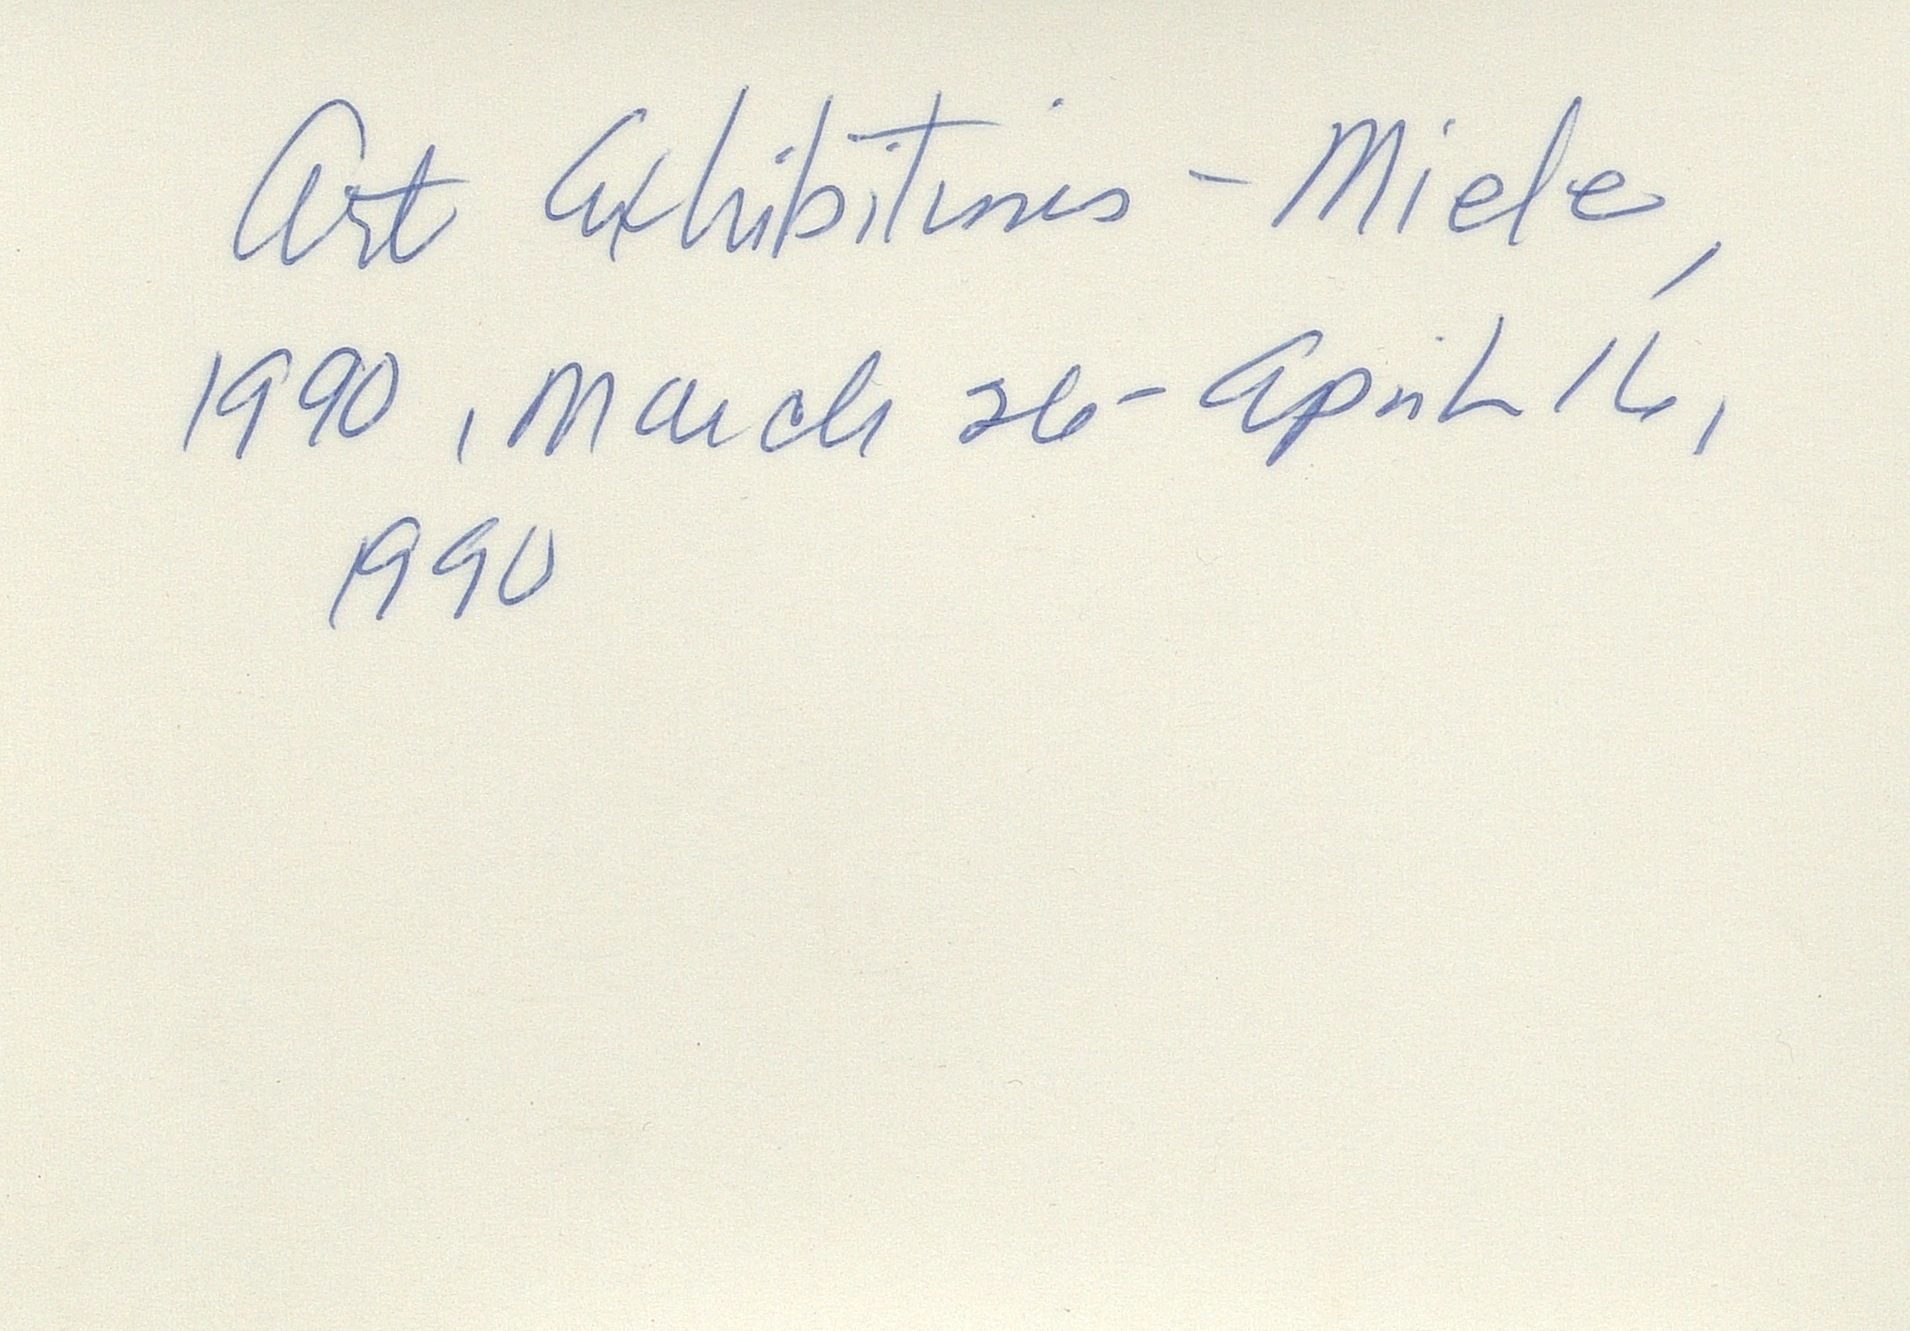 Art Exhibitions - Miele,
1990, March 26 - April 16,
1990